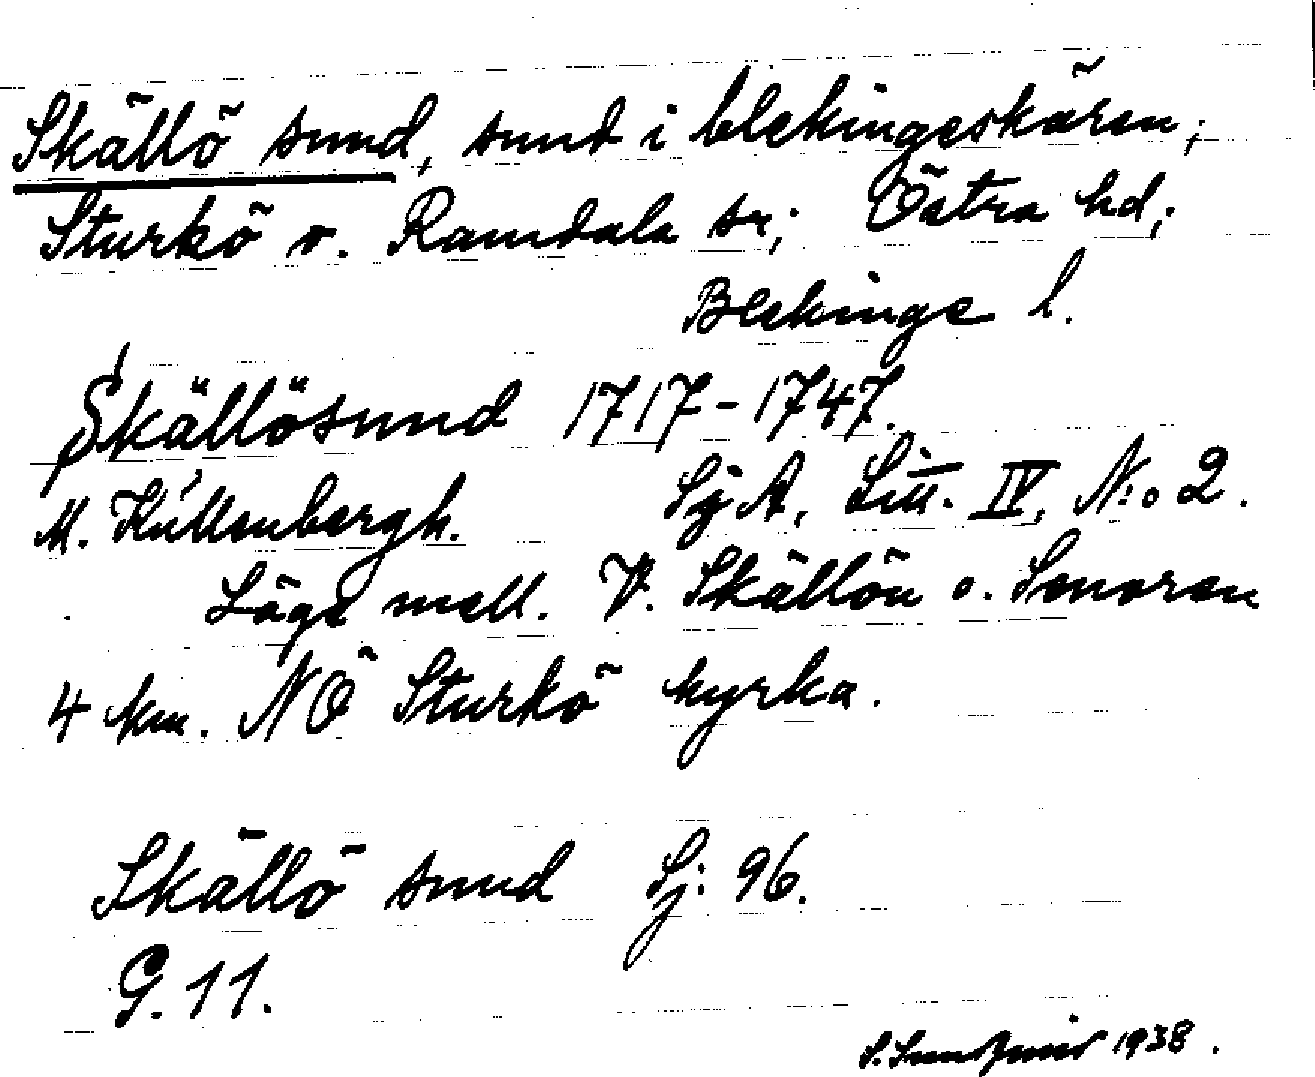 Skällö sund, sund i blekingeskären;
Sturkö o. Ramdala sn; Östra hd;
Blekinge l.
Skällösund 1717-1747.
M. Küllenbergh. SjA, Litt. IV, N:o 2.
Läge mell. V. Skällön o. Senoren
4 km. NÖ Sturkö kyrka.
Skällö sund Sj: 96.
G. 11.
1938.